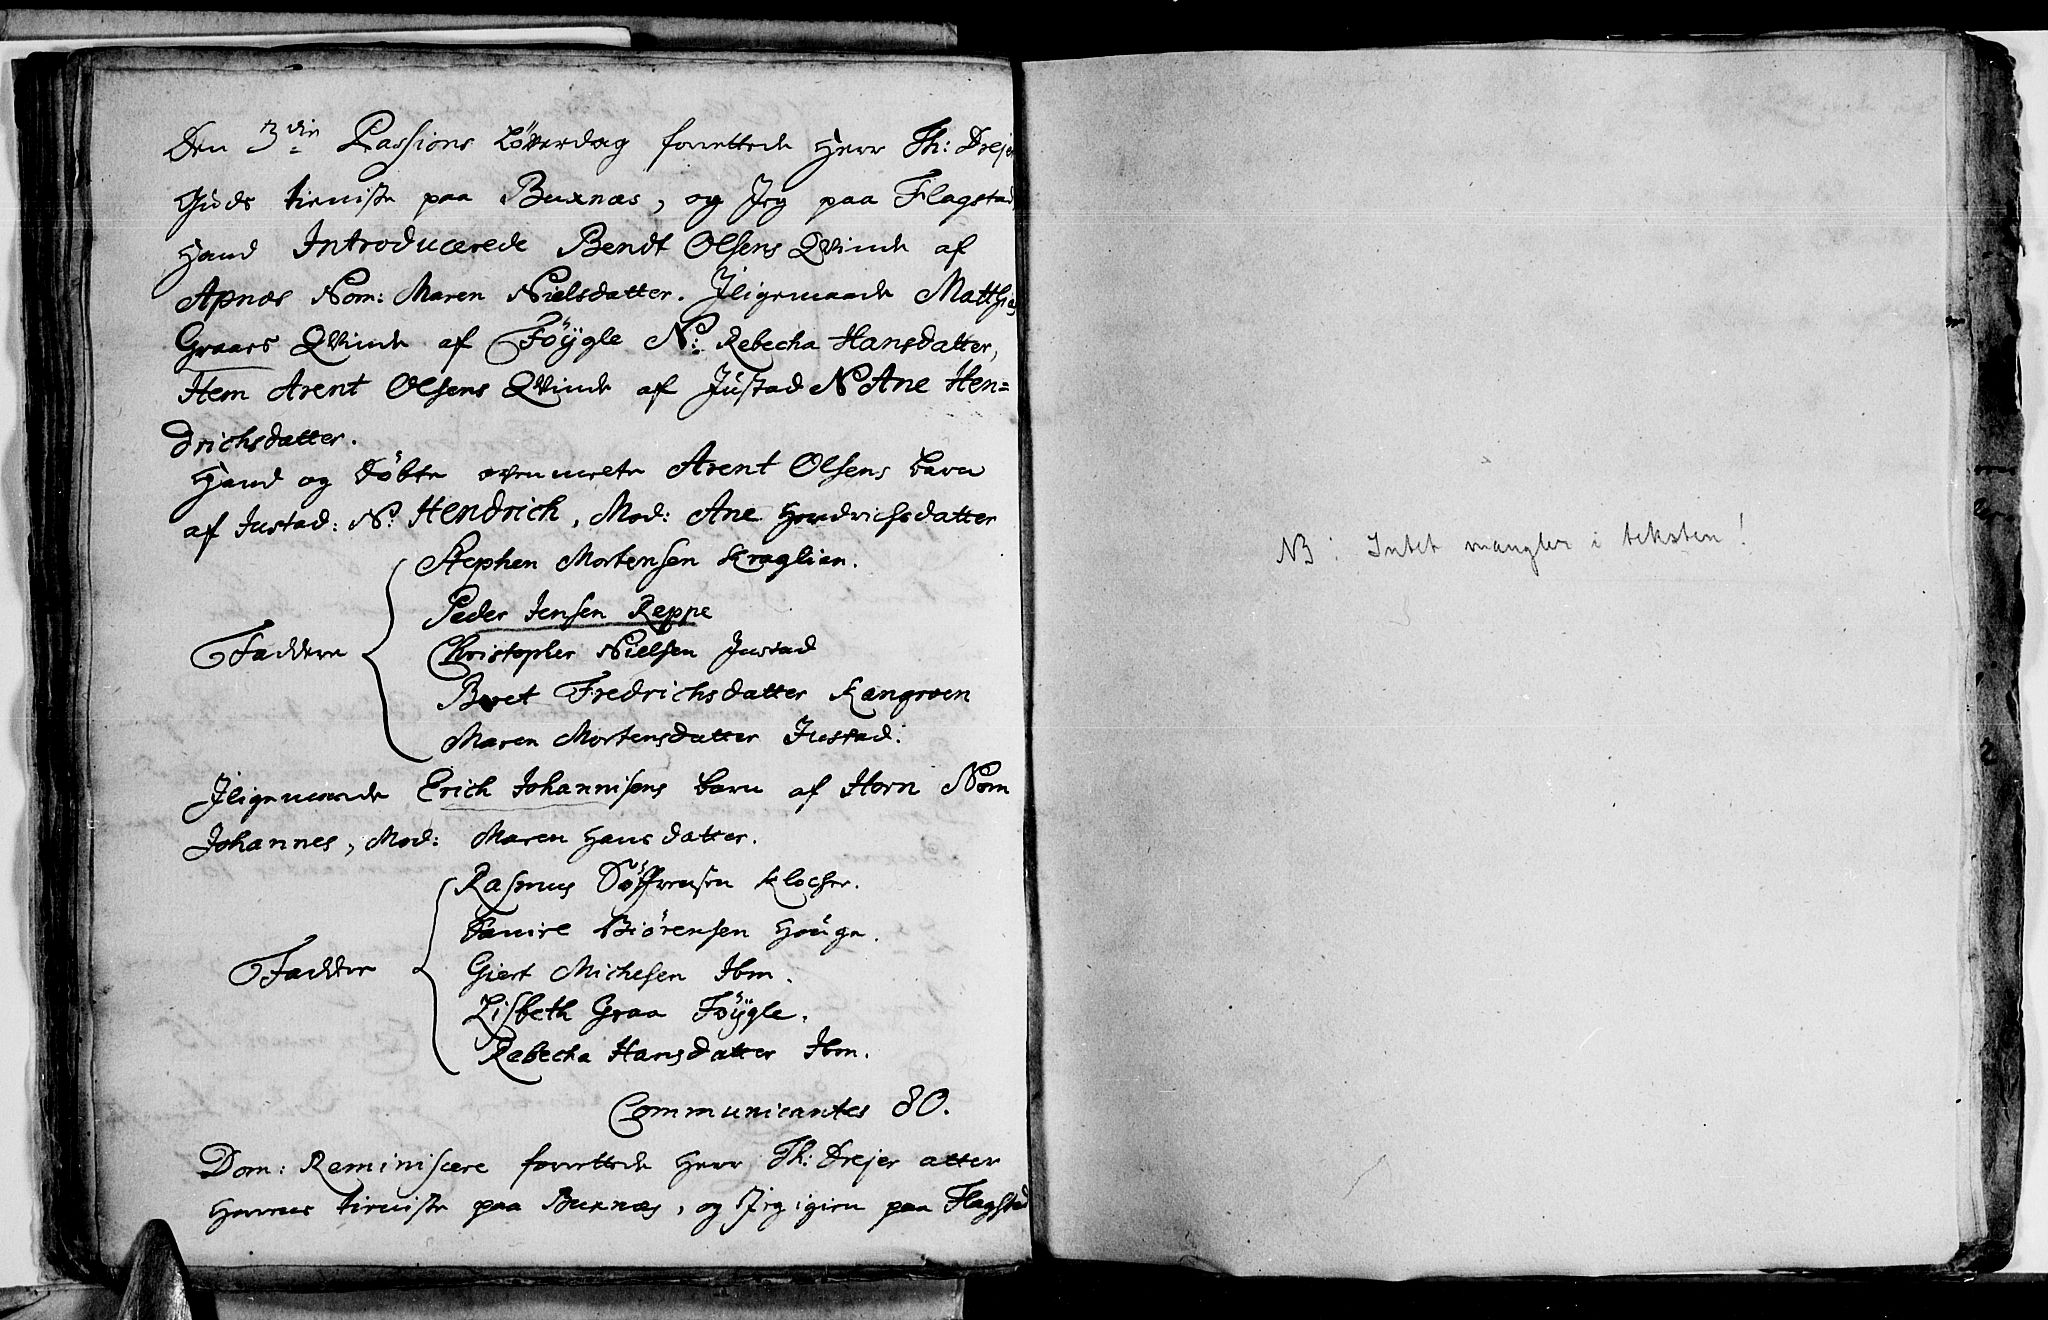 Den 3die Passions Løverdag forrettede Herr Th: Drejer
Guds tieniste paa Buxnæs, og Jeg paa Flagstad,
Hand Introducerede Bendt Olsens Qvinde af
Apnæs Nom: Maren Nielsdatter. Jligemaade Matthias
Graaes Qvinde af Föÿgle N: Rebecha Hansdatter,
Item Arent Olsens Qvinde af Justad N Ane Hen=
drichsdatter.
Hand og döbte ovenmelte Arent Olsens barn
af Justad: N: Hendrich, Mod: Ane Hendrichsdatter
Stephen Mortensen Kraglien.
Peder Jensen Reppe
Faddere Christopher Nielsen Justad
Beret Fredrichsdatter Kangroen
Maren Mortensdatter Justad.
Jligemaade Erich Johannisens barn af Horn Nom
Johannes, Mod: Maren Hansdatter.
Rasmus Söffrensen Klocher.
Biörensen Houge.
Fadder Giert Michelsen Ibm.
Lisbeth Graa Föÿgle.
Rebecha Hansdatter Ibm.
Communicantes 80.
Dom: Reminiscere forrettede Herr Th: Drejer atter
Herrens tieniste paa Buxnæs, og Jeg igien paa Flagstad
NB: Intet mangler i teksten!